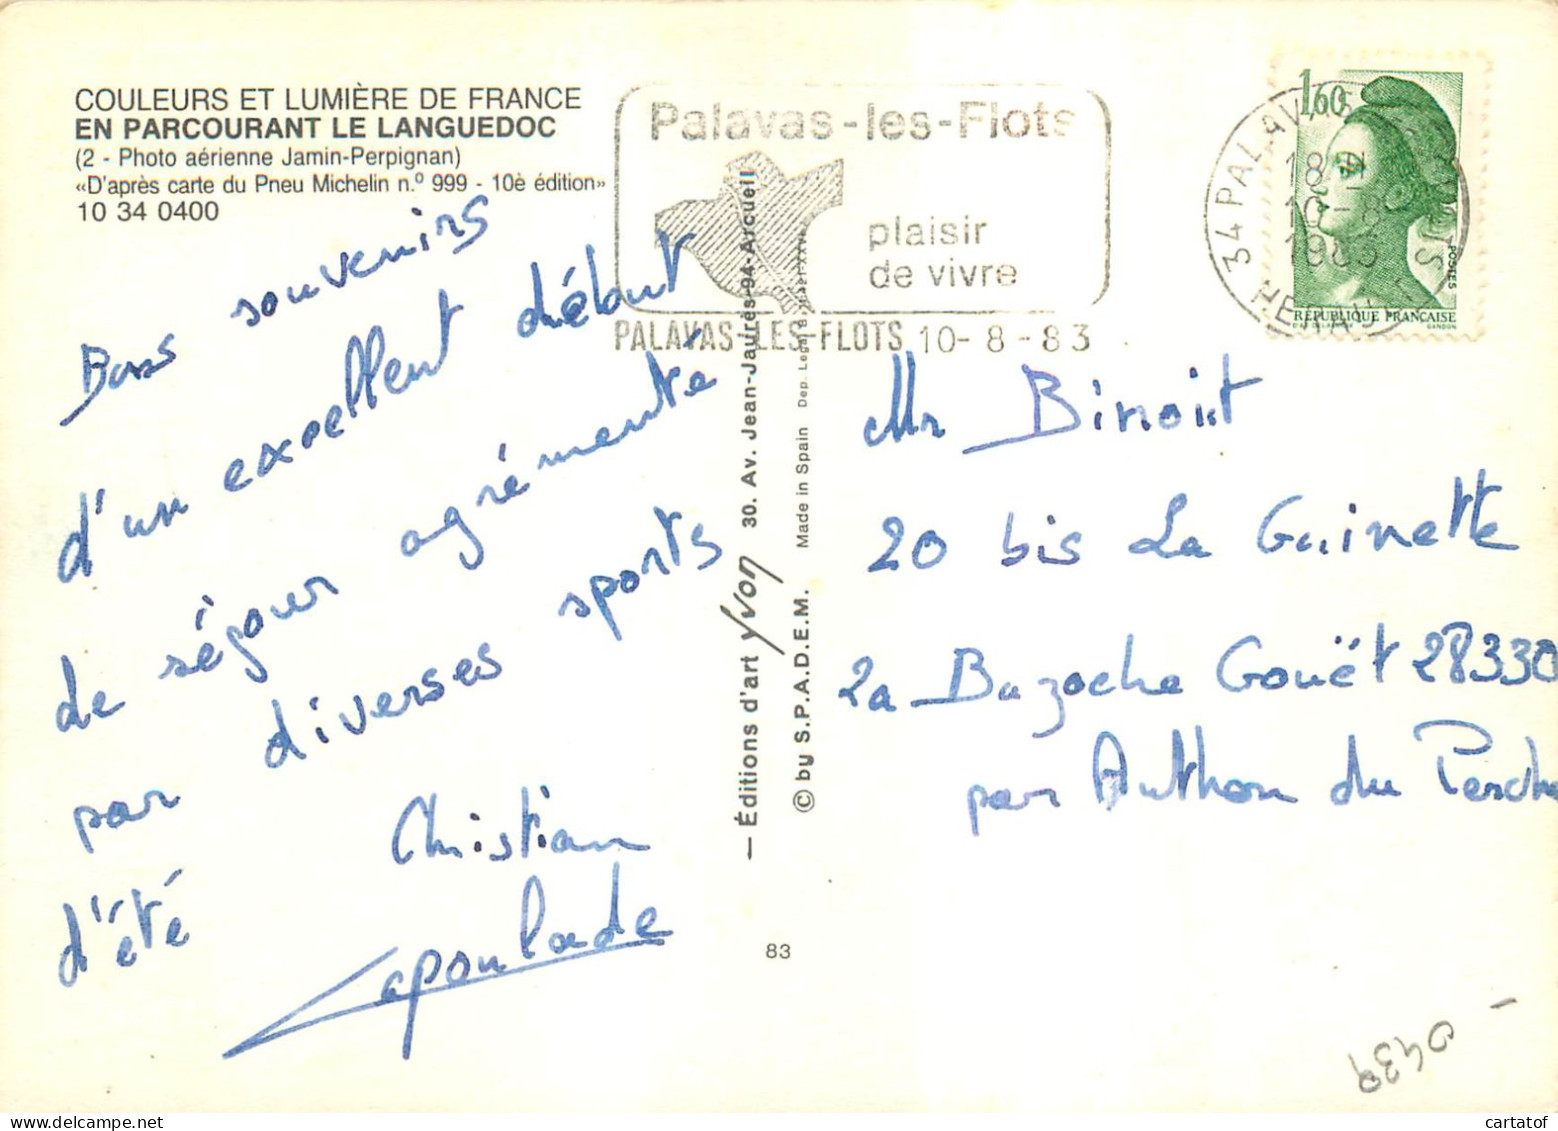 COULEURS ET LUMIÈRE DE FRANCE
EN PARCOURANT LE LANGUEDOC
(2 - Photo aérienne Jamin-Perpignan)
«D'après carte du Pneu Michelin n.º 999 - 10è édition»
10 34 0400
Palavas-les-Flots
plaisir
de vivre
PALAVAS-LES-FLOTS 10-8-83
34 PALAVAS
HERAULT
18 H
10-8
1983
1,60
POSTES
RÉPUBLIQUE FRANÇAISE
GANDON
Bons souvenirs
d'un excellent début
de séjour agrémenté
par diverses sports
d'été
Christian
Lapoulade
— Éditions d'art Yvon 30. Av. Jean-Jaurès-94-Arcueil
© by S.P.A.D.E.M. Made in Spain Dep.
83
Mr Binoit
20 bis La Guinette
La Bazoche Gouët 28330
par Authon du Perche
0439
cartatof